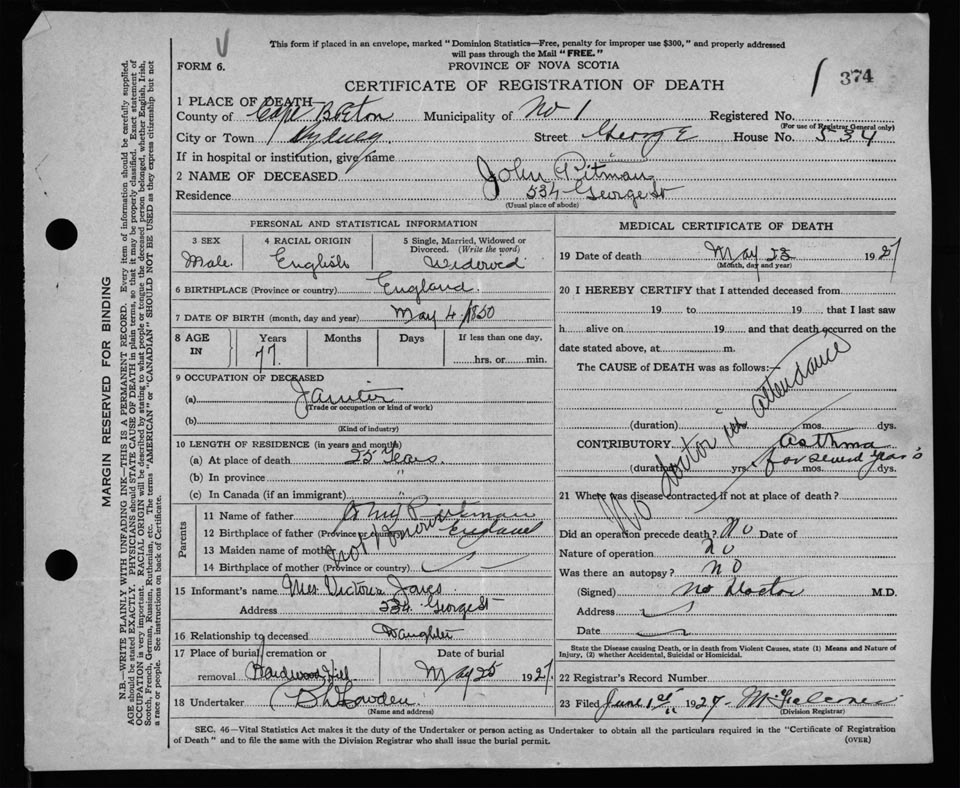 V
This form if placed in an envelope, marked "Dominion Statistics—Free, penalty for improper use $300," and properly addressed
will pass through the Mail "FREE."
FORM 6.
PROVINCE OF NOVA SCOTIA
CERTIFICATE OF REGISTRATION OF DEATH
374
1 PLACE OF DEATH
County of Cape Breton Municipality of No 1 Registered No.
(For use of Registrar General only)
City or Town Sydney Street George House No. 534
If in hospital or institution, give name
2 NAME OF DECEASED John Pitman
Residence 534 George St
(Usual place of abode)
PERSONAL AND STATISTICAL INFORMATION
3 SEX
Male.
4 RACIAL ORIGIN
English
5 Single, Married, Widowed or
Divorced. (Write the word)
Widowed
6 BIRTHPLACE (Province or country) England
7 DATE OF BIRTH (month, day and year) May 4/1850
8 AGE
IN
Years
77.
Months
Days
If less than one day,
hrs. or min.
9 OCCUPATION OF DECEASED
(a) Janitor
(Trade or occupation or kind of work)
(b)
(Kind of industry)
10 LENGTH OF RESIDENCE (in years and months)
(a) At place of death 25 Years.
(b) In province "
(c) In Canada (if an immigrant) "
Parents
11 Name of father John
12 Birthplace of father (Province or country) England
13 Maiden name of mother
Not Known
14 Birthplace of mother (Province or country)
15 Informant's name Mrs Victoria
Address 534 George St
16 Relationship to deceased Daughter
17 Place of burial, cremation or
removal Hardwood Hill
Date of burial
May 25 1927.
18 Undertaker Lowden
(Name and address)
MEDICAL CERTIFICATE OF DEATH
19 Date of death May 23 1927
(Month, day and year)
20 I HEREBY CERTIFY that I attended deceased from
19 to 19 that I last saw
h alive on 19 and that death occurred on the
date stated above, at m.
The CAUSE of DEATH was as follows:
No doctor in attendance
(duration) yrs. mos. dys.
CONTRIBUTORY Asthma
for several years
(duration) yrs. mos. dys.
21 Where was disease contracted if not at place of death?
Did an operation precede death? No Date of
Nature of operation No
Was there an autopsy? No
(Signed) No Doctor M.D.
Address
Date
State the Disease causing Death, or in death from Violent Causes, state (1) Means and Nature of
Injury, (2) whether Accidental, Suicidal or Homicidal.
22 Registrar's Record Number
23 Filed June 1st 1927
(Division Registrar)
SEC. 46—Vital Statistics Act makes it the duty of the Undertaker or person acting as Undertaker to obtain all the particulars required in the "Certificate of Registration
of Death" and to file the same with the Division Registrar who shall issue the burial permit.
(OVER)
MARGIN RESERVED FOR BINDING
N.B.—WRITE PLAINLY WITH UNFADING INK—THIS IS A PERMANENT RECORD. Every item of information should be carefully supplied.
AGE should be stated EXACTLY. PHYSICIANS should STATE CAUSE OF DEATH in plain terms, so that it may be properly classified. Exact statement of
OCCUPATION is very important. RACIAL ORIGIN will be described by stating to what people or tongue the deceased person belonged, whether English, Irish,
Scotch, French, German, Russian, Ruthenian, etc. The terms "AMERICAN" or "CANADIAN" SHOULD NOT BE USED as they express citizenship but not
a race or people. See instructions on back of Certificate.